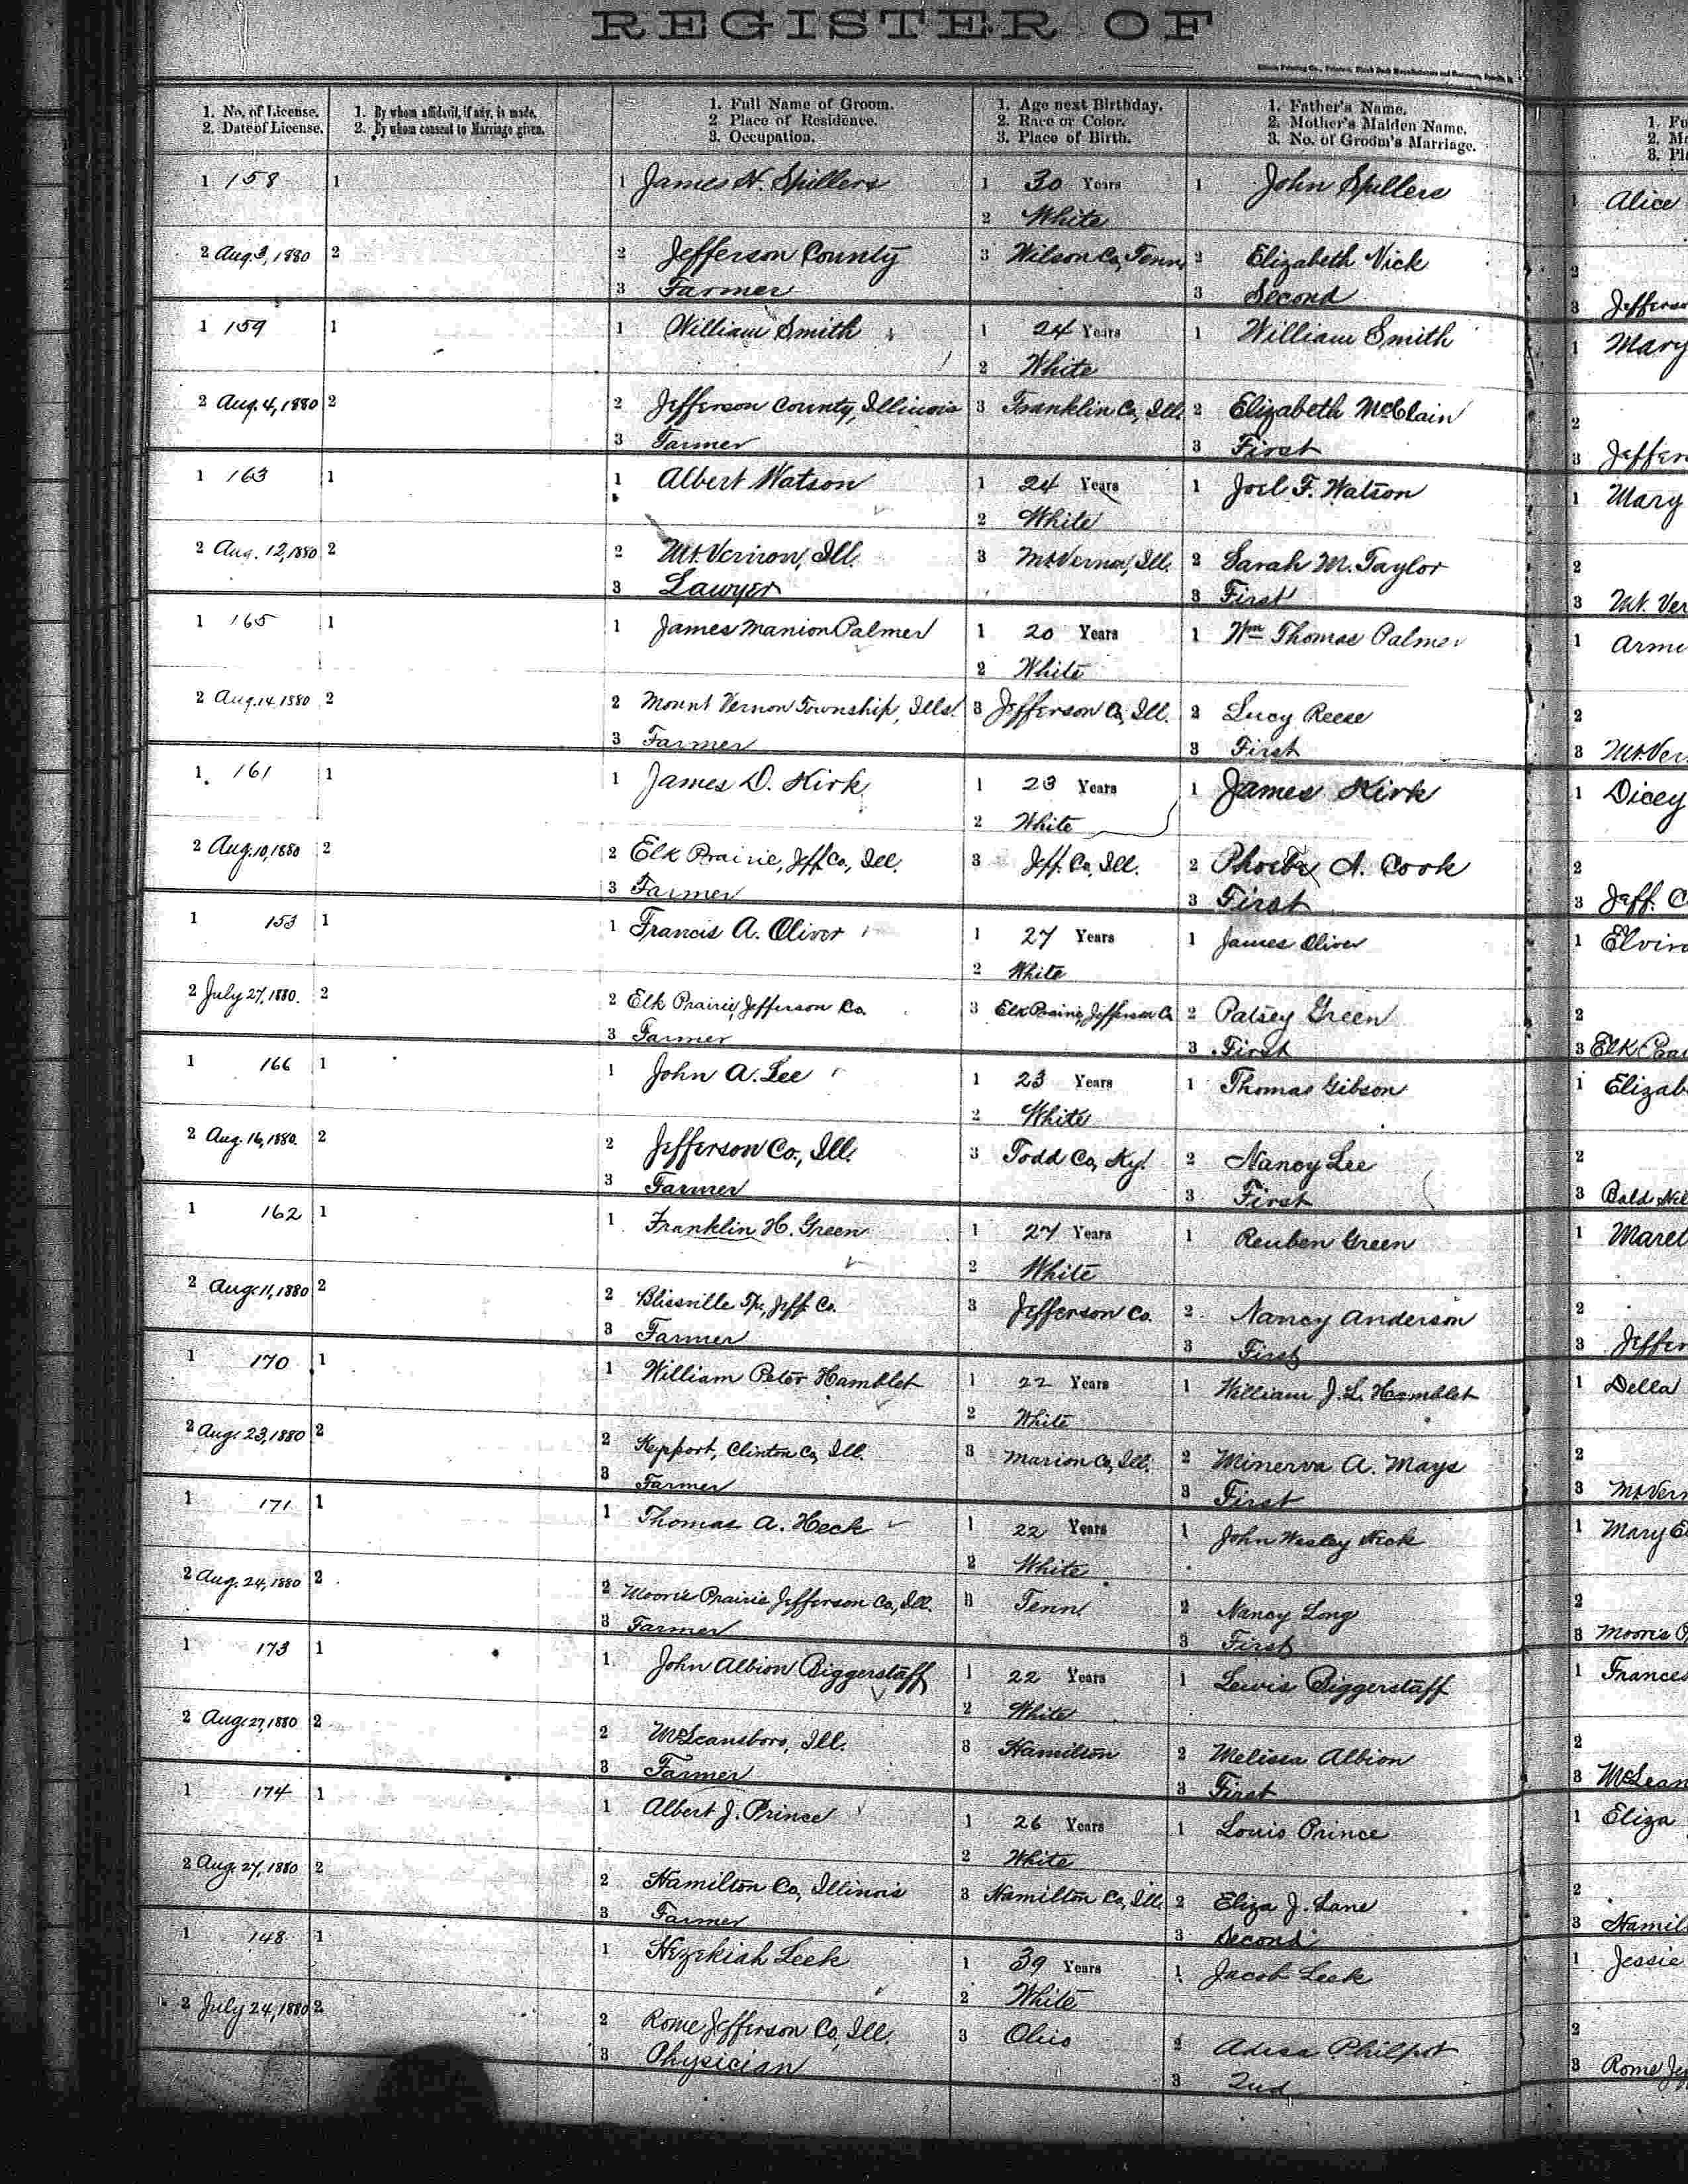 REGISTER OF
1. No. of License. 1. By whom affidavit, if any, is made. 1. Full Name of Groom. 1. Age next Birthday. 1. Father's Name.
2. Date of License. 2. By whom consent to Marriage given. 2 Place of Residence. 2. Race or Color. 2. Mother's Maiden Name. 1. Fu
3. Occupation. 3. Place of Birth. 3. No. of Groom's Marriage. 2. Ma
3. Pl
1 158 1 1 James H. Spillers 1 30 Years 1 John Spillers 1 Alice
2 White
2 Aug 3, 1880 2 2 Jefferson County 3 Wilson Co, Tenn 2 Elizabeth Vick 2
3 Farmer 3 Second 3 Jefferso
1 159 1 1 William Smith 1 24 Years 1 William Smith 1 Mary
2 White
2 Aug. 4, 1880 2 2 Jefferson County, Illinois 3 Franklin Co, Ill. 2 Elizabeth McClain 2
3 Farmer 3 First 3 Jeffer
1 163 1 1 Albert Watson 1 24 Years 1 Joel F. Watson 1 Mary
2 White
2 Aug. 12, 1880 2 2 Mt. Vernon, Ill. 3 Mt. Vernon, Ill. 2 Sarah M. Taylor 2
3 Lawyer 3 First 3 Mt. Ver
1 165 1 1 James Manion Palmer 1 20 Years 1 Wm Thomas Palmer 1 Arme
2 White
2 Aug. 14, 1880 2 2 Mount Vernon Township, Ills. 3 Jefferson Co, Ill. 2 Lucy Reese 2
3 Farmer 3 First 3 Mt. Ver
1. 161 1 1 James D. Kirk 1 23 Years 1 James Kirk 1 Dicey
2 White
2 Aug. 10, 1880 2 2 Elk Prairie, Jeff. Co, Ill. 3 Jeff. Co, Ill. 2 Phoebe A. Cook 2
3 Farmer 3 First 3 Jeff. C
1 153 1 1 Francis A. Oliver 1 27 Years 1 James Oliver 1 Elvira
2 White
2 July 27, 1880. 2 2 Elk Prairie, Jefferson Co. 3 Elk Prairie, Jefferson Co 2 Patsey Green 2
3 Farmer 3 First 3 Elk Prai
1 166 1 1 John A. Lee 1 23 Years 1 Thomas Gibson 1 Elizab
2 White
2 Aug. 16, 1880. 2 2 Jefferson Co., Ill. 3 Todd Co, Ky. 2 Nancy Lee 2
3 Farmer 3 First 3 Bald Hil
1 162 1 1 Franklin H. Green 1 27 Years 1 Reuben Green 1
2 White
2 Aug. 11, 1880 2 2 Blissville Tp., Jeff. Co. 3 Jefferson Co. 2 Nancy Anderson 2
3 Farmer 3 First 3 Jeffer
1 170 1 1 William Peter Hamblet 1 22 Years 1 William J. L. Hamblet 1 Della
2 White
2 Aug. 23, 1880 2 2 Keyport, Clinton Co, Ill. 3 Marion Co, Ill. 2 Minerva A. Mays 2
3 Farmer 3 First 3 Mt. Vern
1 171 1 1 Thomas A. Heck 1 22 Years 1 John Wesley Heck 1 Mary E
2 White
2 Aug. 24, 1880 2 2 Moore's Prairie Jefferson Co, Ill. 3 Tenn. 2 Nancy Long 2
3 Farmer 3 First 3 Moore's P
1 173 1 1. John Albion Biggerstaff 1 22 Years 1 Lewis Biggerstaff 1 Frances
2 White
2 Aug. 27, 1880 2 2 McLeansboro, Ill. 3 Hamilton 2 Melissa Albion 2
3 Farmer 3 First 3 McLean
1 174 1 1 Albert J. Prince 1 26 Years 1 Louis Prince 1 Eliza
2 White
2 Aug. 27, 1880 2 2 Hamilton Co, Illinois 3 Hamilton Co, Ill. 2 Eliza J. Lane 2
3 Farmer 3 Second 3 Hamil
1 148 1 1 Hezekiah Leek 1 39 Years 1 Jacob Leek 1 Jessie
2 White
2 July 24, 1880 2 2 Rome Jefferson Co, Ill. 3 Ohio 2 Philpot 2
3 Physician 3 2nd 3 Rome Je